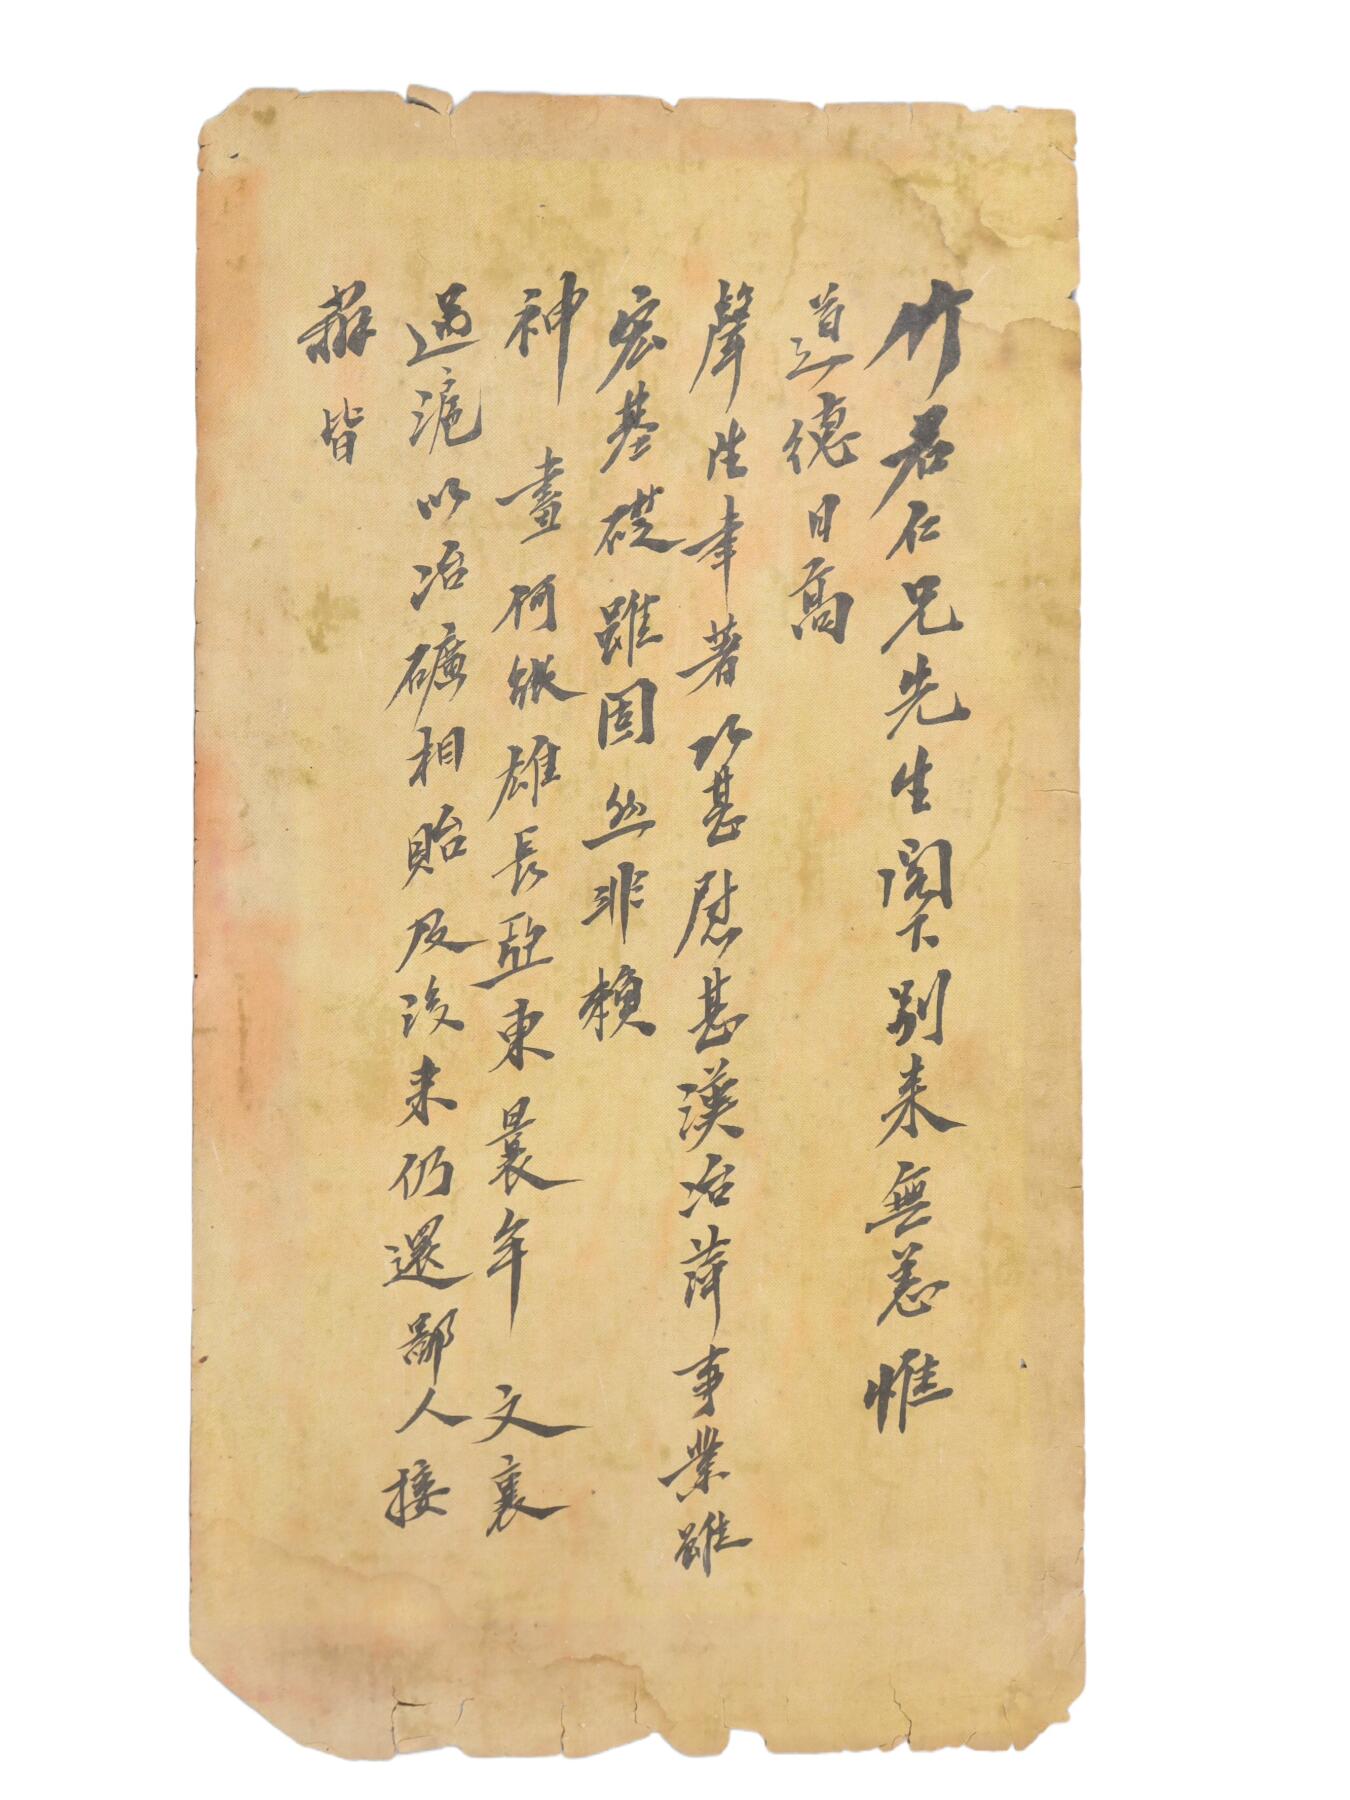 竹君仁兄先生閣下別來無恙惟
道德日高
聲生聿著以甚慰甚漢冶萍事業雖
宏基礎雖固然非賴
神畫何能雄長亞東曩年文襄
過滬以冶礦相貽及後來仍還鄙人接
辦皆